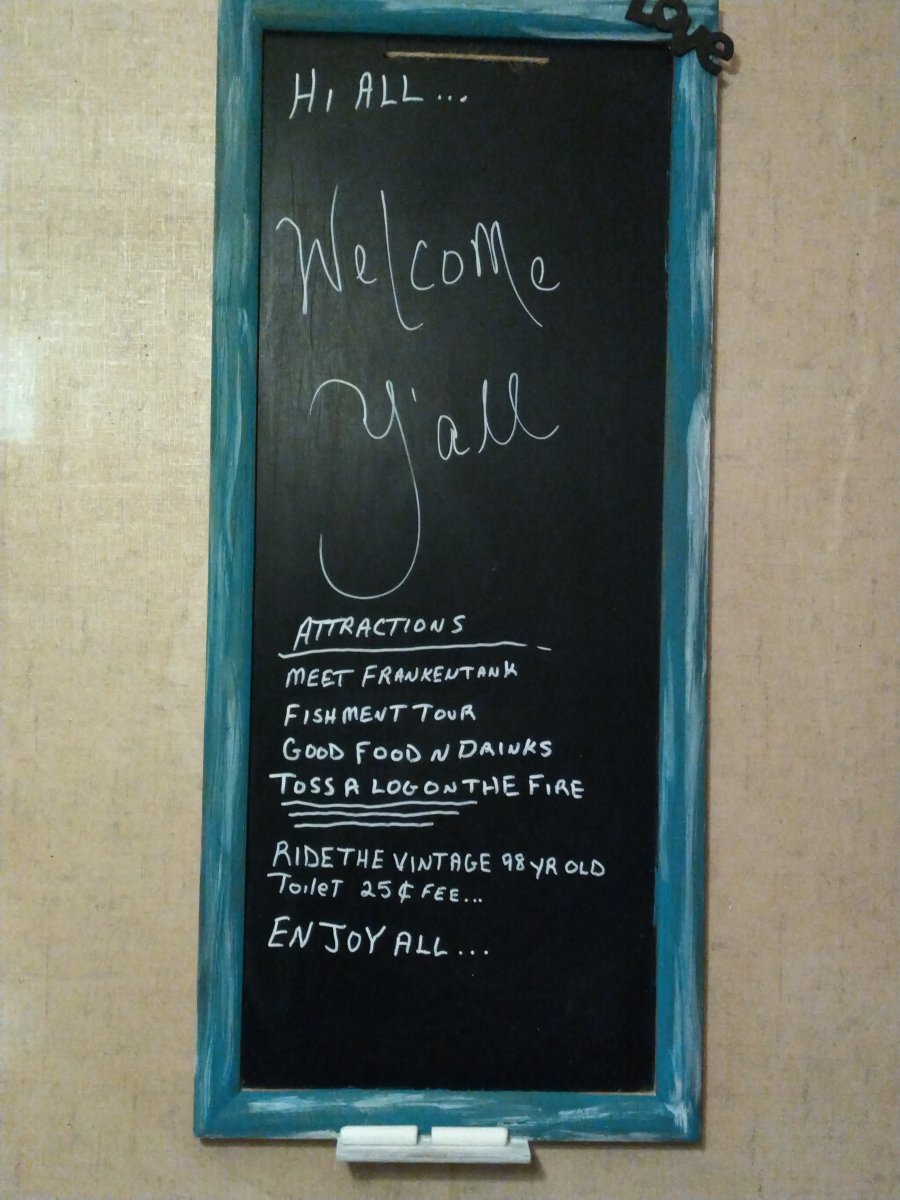 Love
HI ALL...
Welcome
Y'all
ATTRACTIONS
MEET FRANKENTANK
FISHMENT TOUR
GOOD FOOD N DRINKS
TOSS A LOG ON THE FIRE
RIDE THE VINTAGE 98 YR OLD
ToileT 25¢ FEE...
ENJOY ALL...